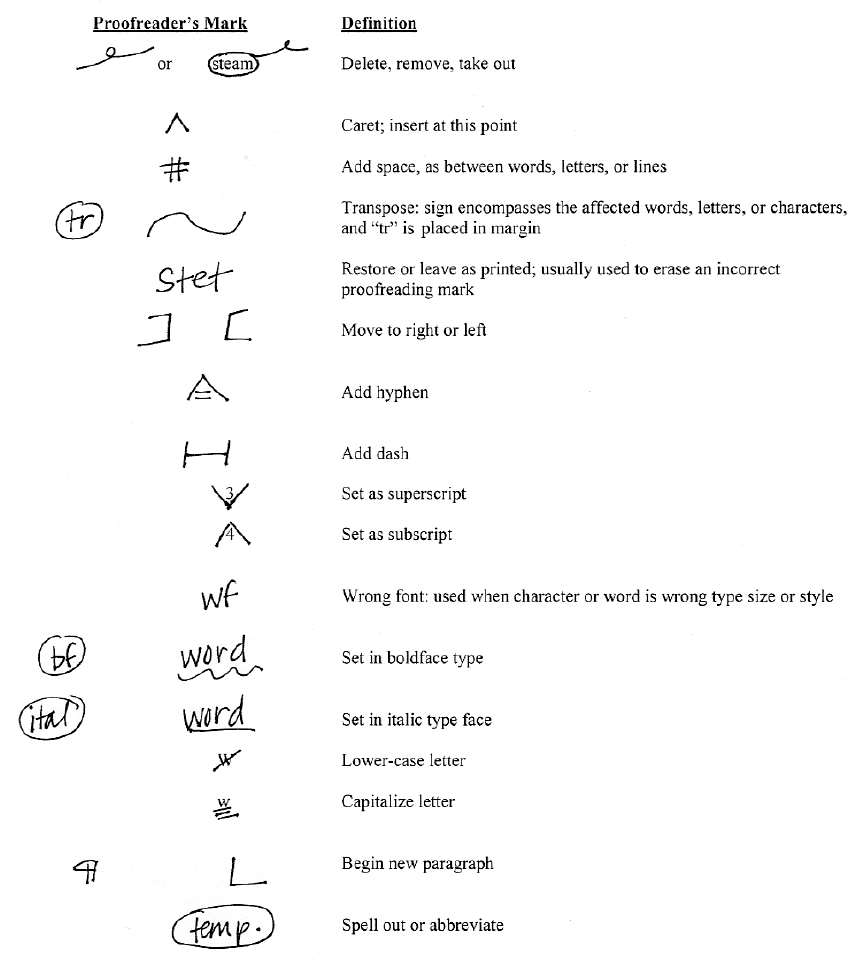 Proofreader's Mark Definition
or steam Delete, remove, take out
Caret; insert at this point
# Add space, as between words, letters, or lines
tr Transpose: sign encompasses the affected words, letters, or characters,
and "tr" is placed in margin
Stet Restore or leave as printed; usually used to erase an incorrect
proofreading mark
] [ Move to right or left
Add hyphen
Add dash
3 Set as superscript
4 Set as subscript
wf Wrong font: used when character or word is wrong type size or style
bf word Set in boldface type
ital word Set in italic type face
w Lower-case letter
w Capitalize letter
¶ L Begin new paragraph
temp. Spell out or abbreviate